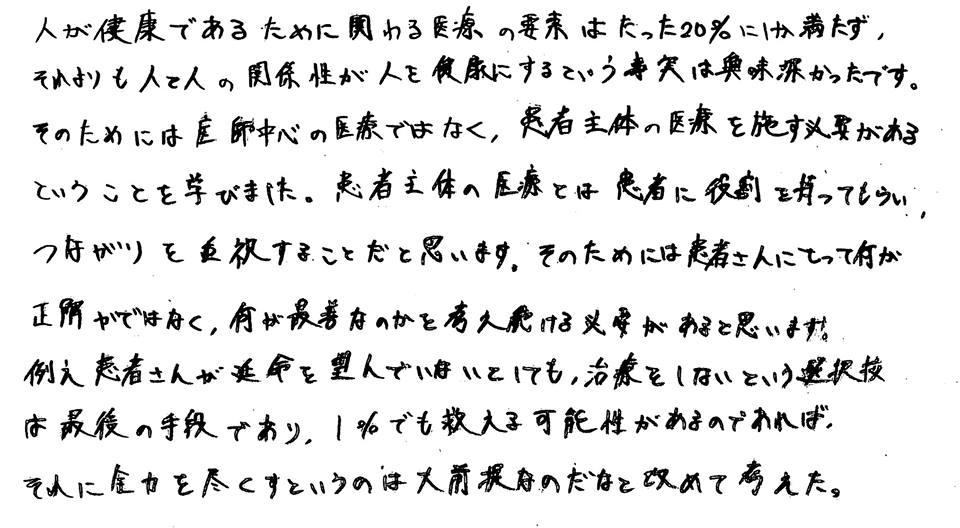 人が健康であるために関わる医療の要素はたった20%にしか満たず,
それよりも人と人の関係性が人を健康にするという事実は興味深かったです。
そのためには医師中心の医療ではなく,患者主体の医療を施す必要がある
ということを学びました。患者主体の医療とは患者に役割を持ってもらい,
つながりを重視することだと思います。そのためには患者さんにとって何が
正解かではなく,何が最善なのかを考え続ける必要があると思います。
例え患者さんが延命を望んでいないとしても,治療をしないという選択肢
は最後の手段であり,1%でも救える可能性があるのであれば,
それに全力を尽くすというのは大前提なのだなと改めて考えた。